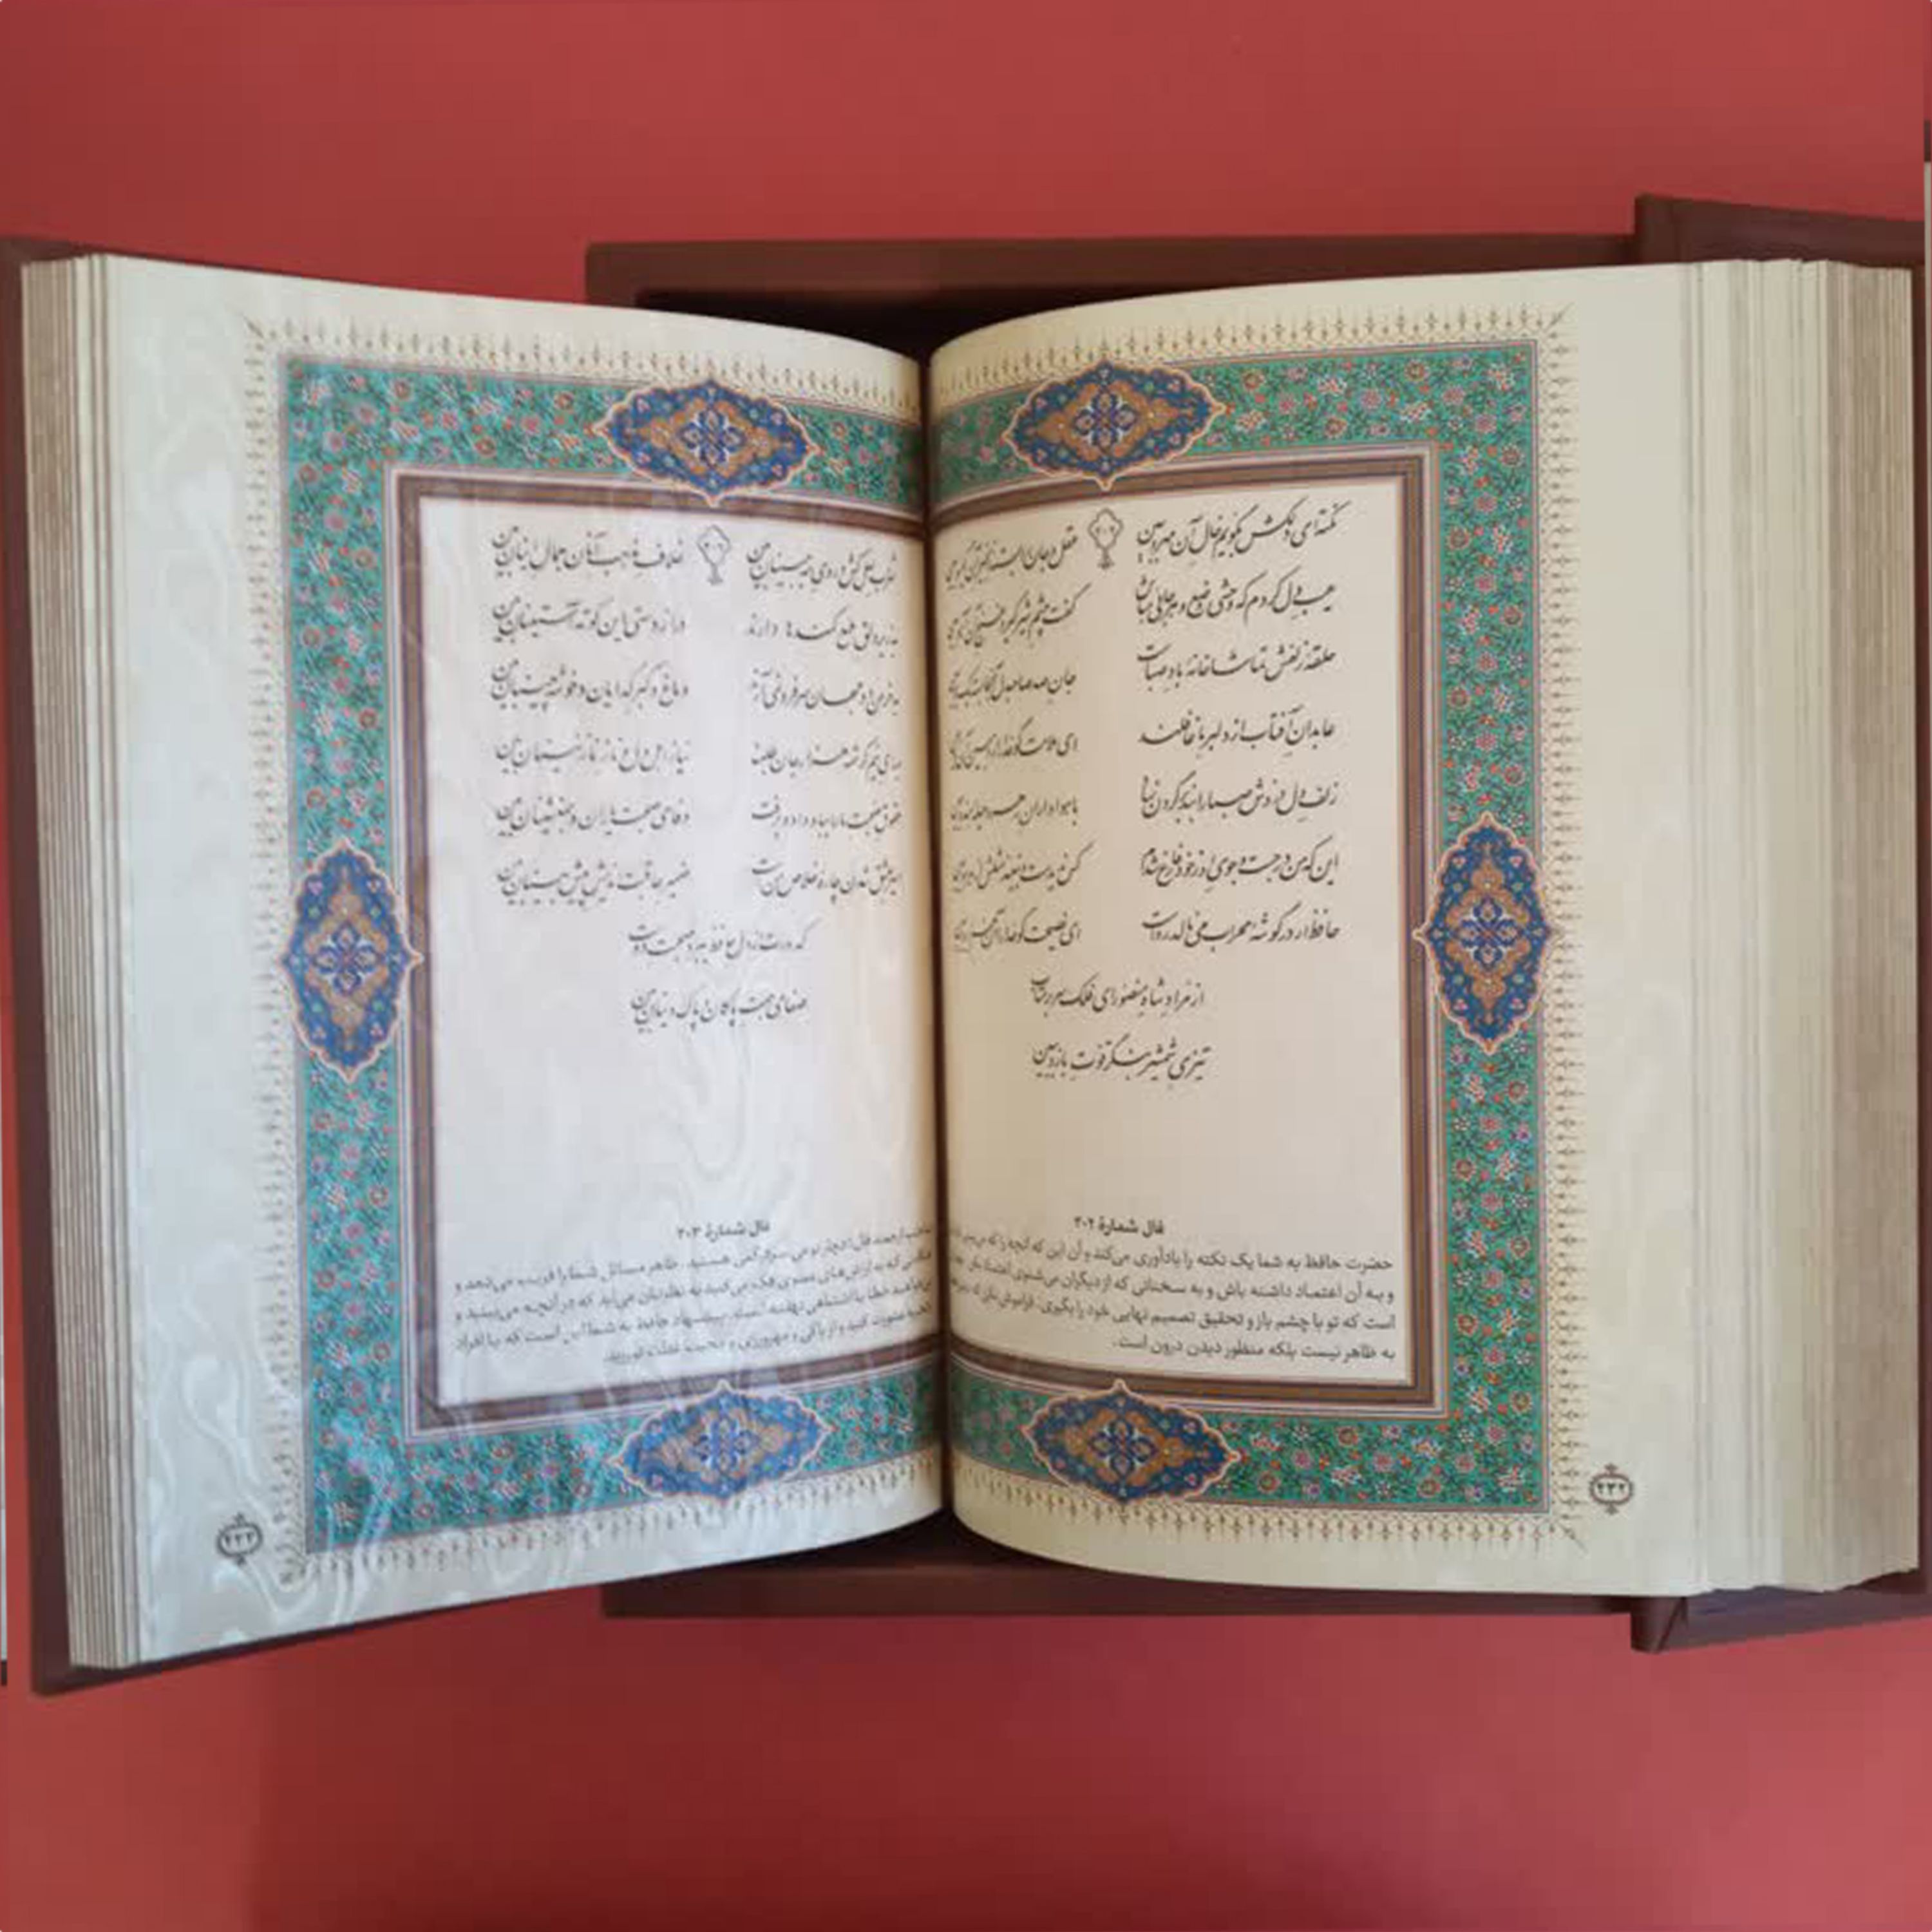 نکته‌ای دلکش بگویم خال آن مه‌رو ببین
۳۰۲
عقل و جان را بسته زنجیر آن گیسو ببین
عیب دل کردم که وحشی وضع و هرجائی مباش
گفت چشم شیرگیر و غنج آن آهو ببین
حلقه زلفش تماشاخانهٔ باد صباست
جان صد صاحبدل آنجا بسته یک مو ببین
عابدان آفتاب از دلبر ما غافلند
ای ملامت‌گو خدا را رو مبین آن رو ببین
زلف دل دزدش صبا را بند بر گردن نهاد
با هواداران رهرو حیله هندو ببین
این که من در جست و جوی او ز خود فارغ شدم
کس ندیدست و نبیند مثلش از هر سو ببین
حافظ ار در گوشهٔ محراب می‌نالد رواست
ای نصیحت‌گو خدا را آن خم ابرو ببین
از مراد شاه منصور ای فلک سر بر متاب
تیزی شمشیر بنگر قوّت بازو ببین
فال شمارهٔ ۳۰۲
حضرت حافظ به شما یک نکته را یادآوری می‌کند و آن این که آنچه را که می‌بینی
و به آن اعتماد داشته باش و به سخنانی که از دیگران می‌شنوی اعتماد مکن
است که تو با چشم باز و تحقیق تصمیم نهایی خود را بگیری. فراموش مکن که
به ظاهر نیست بلکه منظور دیدن درون است.
۲۳۲
شراب لعل کش و روی مه جبینان بین
خلاف مذهب آنان جمال اینان بین
به زیر دلق ملمع کمندها دارند
درازدستی این کوته آستینان بین
به خرمن دو جهان سر فرو نمی‌آرند
دماغ و کبر گدایان و خوشه چینان بین
بهای نیم کرشمه هزار جان طلبند
نیاز اهل دل و ناز نازنینان بین
حقوق صحبت ما را بباد داد و برفت
وفای صحبت یاران و همنشینان بین
اسیر عشق شدن چارهٔ خلاص من است
ضمیر عاقبت اندیش پیش بینان بین
کدورت از دل حافظ ببرد صحبت دوست
صفای همت پاکان و پاک دینان بین
فال شمارهٔ ۳۰۳
ظاهر مسائل شما را فریب می‌دهد و
که به ارزش‌های معنوی فکر می‌کنید به نظرتان می‌آید که در آنچه می‌بینید و
خطا یا اشتباهی نهفته است. پیشنهاد حافظ به شما این است که با افراد
مشورت کنید و از پاکی و مهرورزی و محبت غفلت نورزید.
۲۳۳